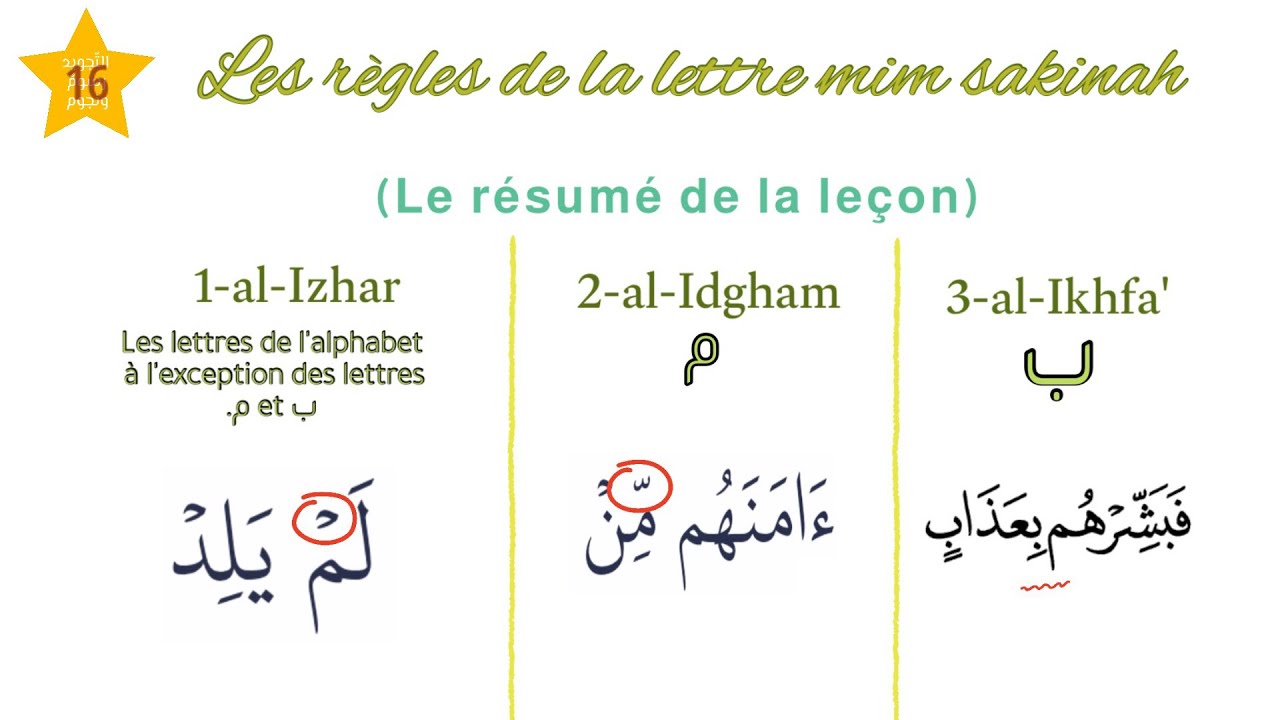 التجويد
16
ونجوم
Les règles de la lettre mim sakinah
(Le résumé de la leçon)
1-al-Izhar
Les lettres de l'alphabet
à l'exception des lettres
ب et م.
لَمۡ يَلِدۡ
2-al-Idgham
م
ءَامَنَهُم مِّنۡ
3-al-Ikhfa'
ب
فَبَشِّرۡهُم بِعَذَابٍ